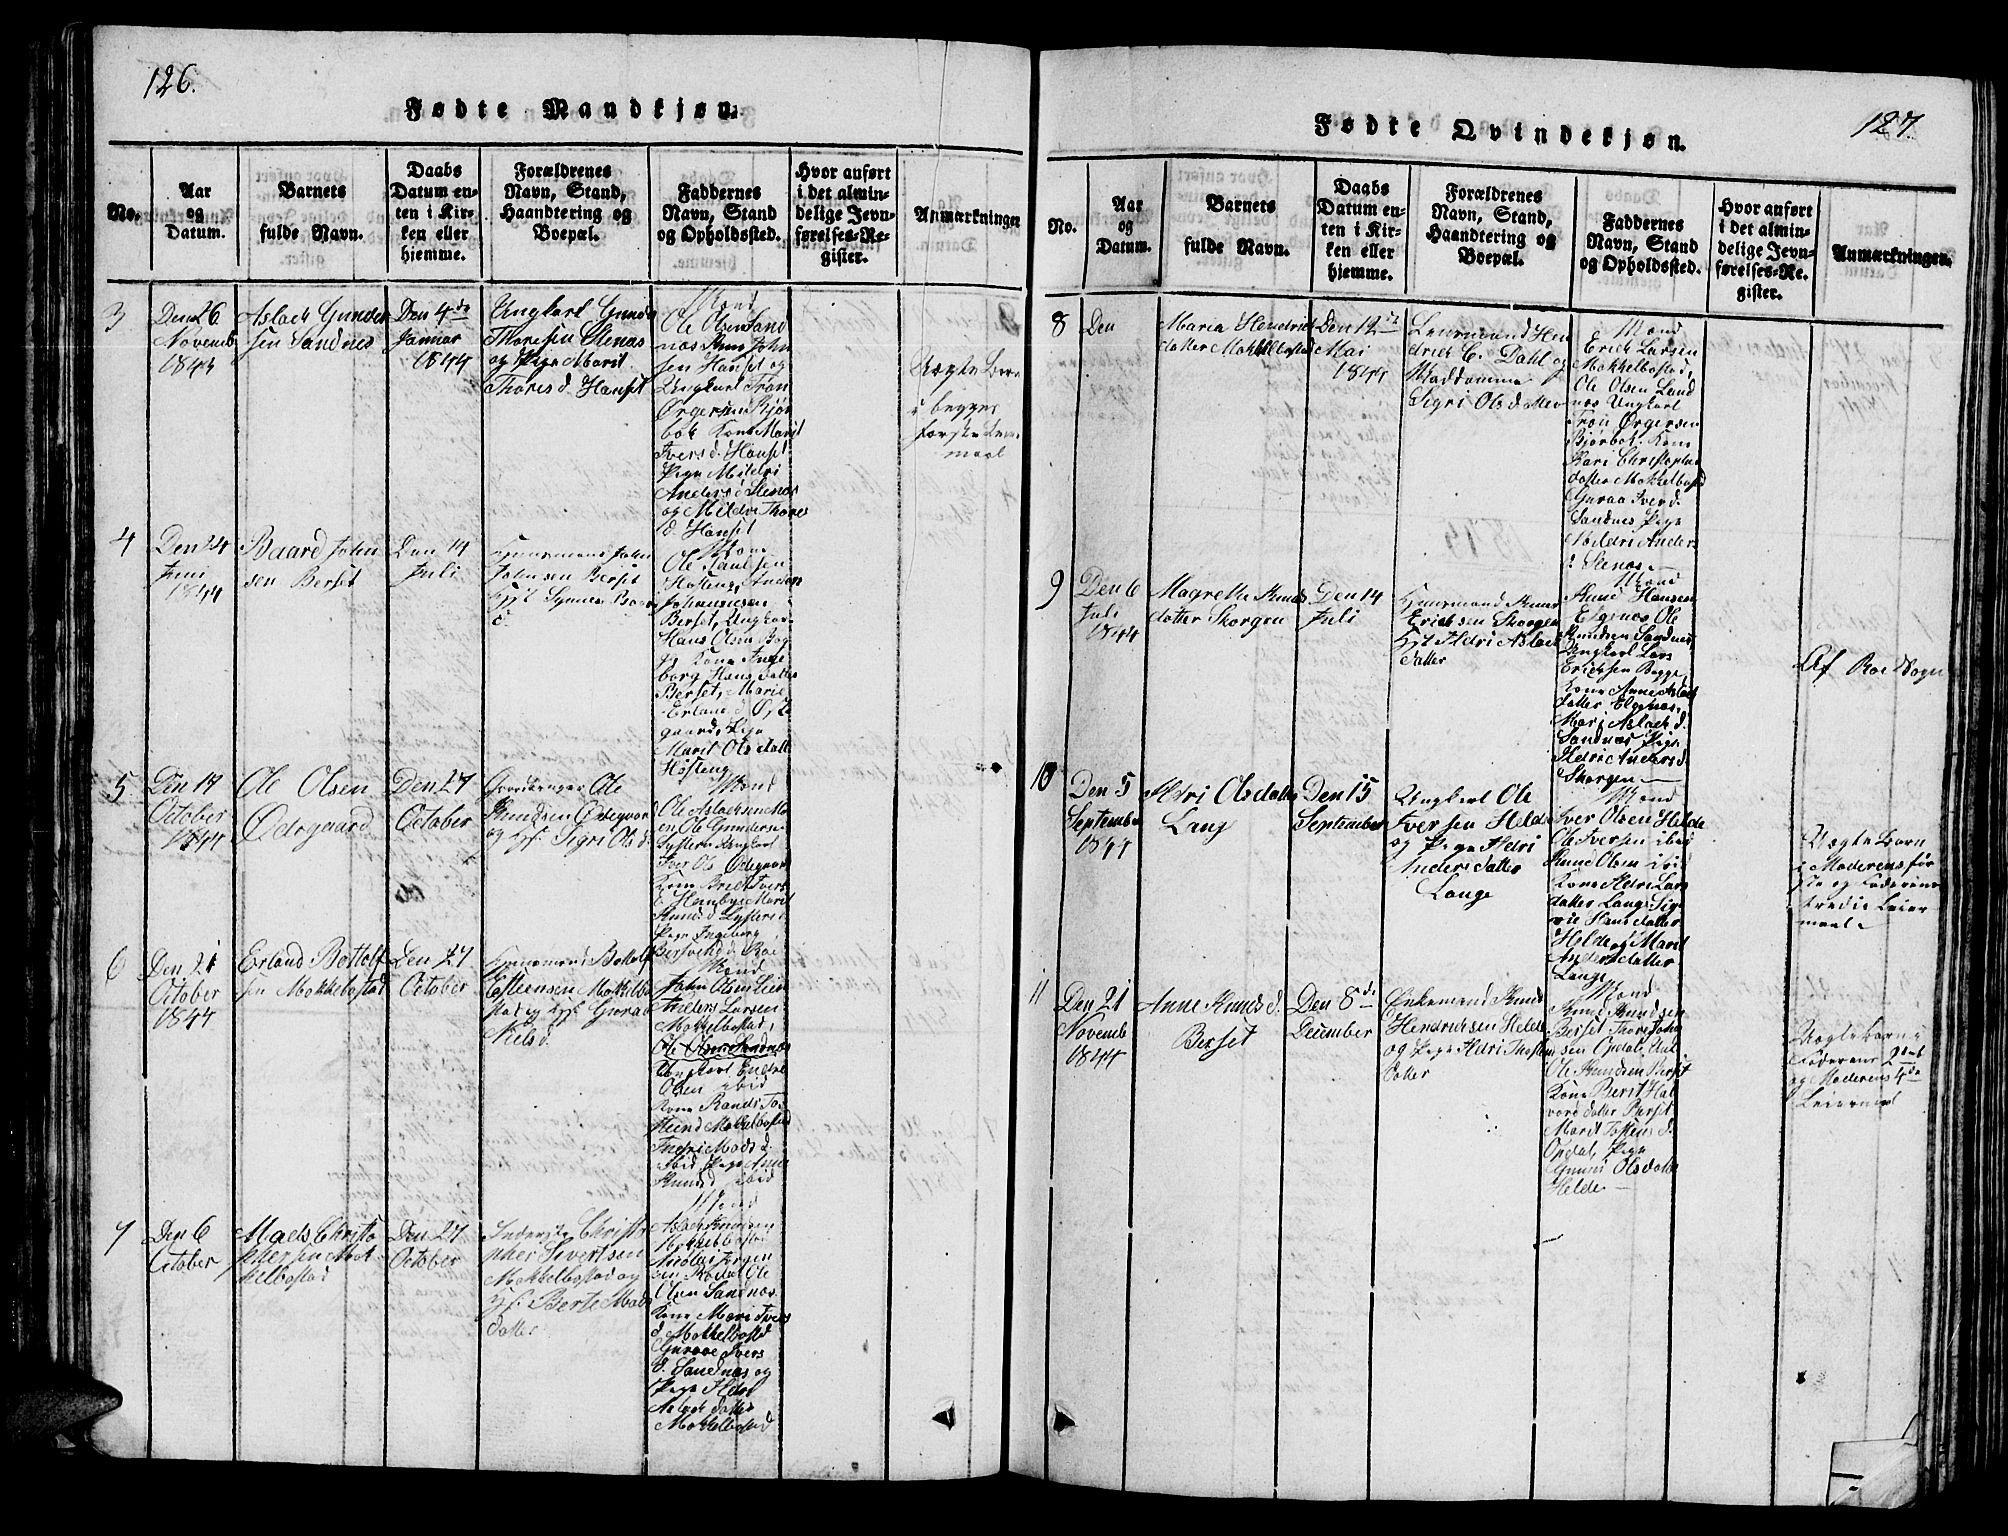 126.
Fødte Mandkjøn.
No.
Aar
og
Datum.
Barnets
fulde Navn.
Daabs
Datum en-
ten i Kir-
ken eller
hjemme.
Forældrenes
Navn, Stand,
Haandtering og
Boepæl.
Faddernes
Navn, Stand
og Opholdssted.
Hvor anført
i det almin-
delige Jevn-
førelses-Re-
gister.
Anmærkninger
3
Den 26
Novemb
1843
Aslack Gunder
sen Sandnes
Den 4de
Januar
1844
Ungkarl Gunder
Thoresen Stenæs
og Pige Marit
Thores d. Hanset
Mænd
Ole Olsen Sand
næs Knu John
sen Hanset og
Ungkarl Tron
Ørgersen Bjør
bok Kone Marit
Ivers d. Hanset
Pige Mildri
Anders d Stenæs
og Mildri Thores
d. Hanset
Uægte Barn
i begges
første Leier
maal
4
Den 24
Juni
1844
Baard John
sen Berset
Den 14
Juli
Huusmand John
Johnsen Berset
Mænd
Ole Paulsen
Høsteng, Anders
Johannesen
Berset, Ungkar
Hans Olsen Bog
ge Kone Inge
borg Hans datter
Berset, Marie
Erland d Øste
gaard, Pige
Marit Ols datt
Høsteng
5
Den 19
October
1844
Ole Olsen
Ødegaard
Den 27
October
Gaardbruger Ole
Knudsen Ødegaar
og Hst. Sigri Ols d.
Mænd
Kone Brit Ivers
Knuds d
Pige Ingeborg
6
Den 21
October
1844
Erland Bottolf
sen Mokkelbostad
Den 27
October
Huusmand Bottolf
Estensen Mokkelbo
stad og Hst. Guraa
Niels d.
Mænd
John Olsen Lien
Peders Larsen
Mokkelbostad,
Ole Olsen Sandnæs
Ungkarl Endre
Olsen ibid
Kone Randi To
sten d Mokkelbostad
Ingri Mads d.
ibid Pige Anne
Knuds d ibid
7
Den 6
October
Mads Christo
phersen Mok
kelbostad
Den 27
October
Inderste Christo
pher Sivertsen
Mokkelbostad og
Hst. Berte Mads
datter
Mænd
Aslak Knudsen
Mokkelbostad
Nicolai Jørgen
sen Rødal Ole
Olsen Sandnæs
Kone Mari Ivers
d. Mokkelbostd
Guraae Ivers
d. Sandnæs og
Pige Ildri
Aslak datter
Mokkelbostad
127.
Fødte Qvindekjøn.
No.
Aar
og
Datum.
Barnets
fulde Navn.
Daabs
Datum en-
ten i Kir-
ken eller
hjemme.
Forældrenes
Navn, Stand,
Haandtering og
Boepæl.
Faddernes
Navn, Stand
og Opholdssted.
Hvor anført
i det almin-
delige Jevn-
førelses-Re-
gister.
Anmærkninger.
8
Den
Maria Hendrick
datter Mokkelbostad
Den 12te
Mai
1844
Leensmand Hen
drick C. Dahl og
Maddamme
Sigri Olsdatter
Mænd
Erick Larsen
Mokkelbostad,
Ole Olsen Sand
næs Ungkarl
Tron Ørgersen
Bjørbok. Kone
Kari Christopher
datter Mokkelbostd
Guraa Iver d.
Sandnæs Pige
Mildri Anders
d Stenæs
9
Den 6
Juli
1844
Magrethe Knuds
datter Skorgen
Den 14
Juli
Huusmand Knud
Ericksen Skorgen
Hst Ildri Aslack
datter
Mænd
Knud Hansen
Elgenæs Ole
Knudsen Sandnæs
Ungkarl Lars
Ericksen Bogge,
Kone Anne Aslack
datter Elgenæs,
Mari Aslack d.
Sandnæs Pige
Ildri Anders d.
Skorgen
Af Røe Sogn
10
Den 5
September
1844
Ildri Olsdatter
Lang
Den 15
September
Ungkarl Ole
Iversen Helde
og Pige Ildri
Anders datter
Lange
Mænd
Iver Olsen Helde
Ole Iversen ibid
Knud Olsen ibid
Kone Ildri Lars
datter Lange Sig
nie Hans datter
Helde og Marit
Anders datter
Lange
Uægte Barn
i Moderens før
ste og Faderens
tredie Leier
maal
11
Den 21
Novemb
1844
Anne Knuds d.
Berset
Den 8de
December
Enkemand Knud
Hendricksen Helde
og Pige Ildri Thosten
datter
Mænd
Knud Knudsen
Berset Thore John
sen Opdal, Ung
Ole Knudsen Berset
Kone Berit Hal
vord datter Berset
Marit Tosten d.
Opdal, Pige
Gunni Olsdatter
Helde
Uægte Barn i
Faderens 2det
og Moderens 4de
Leiermaal